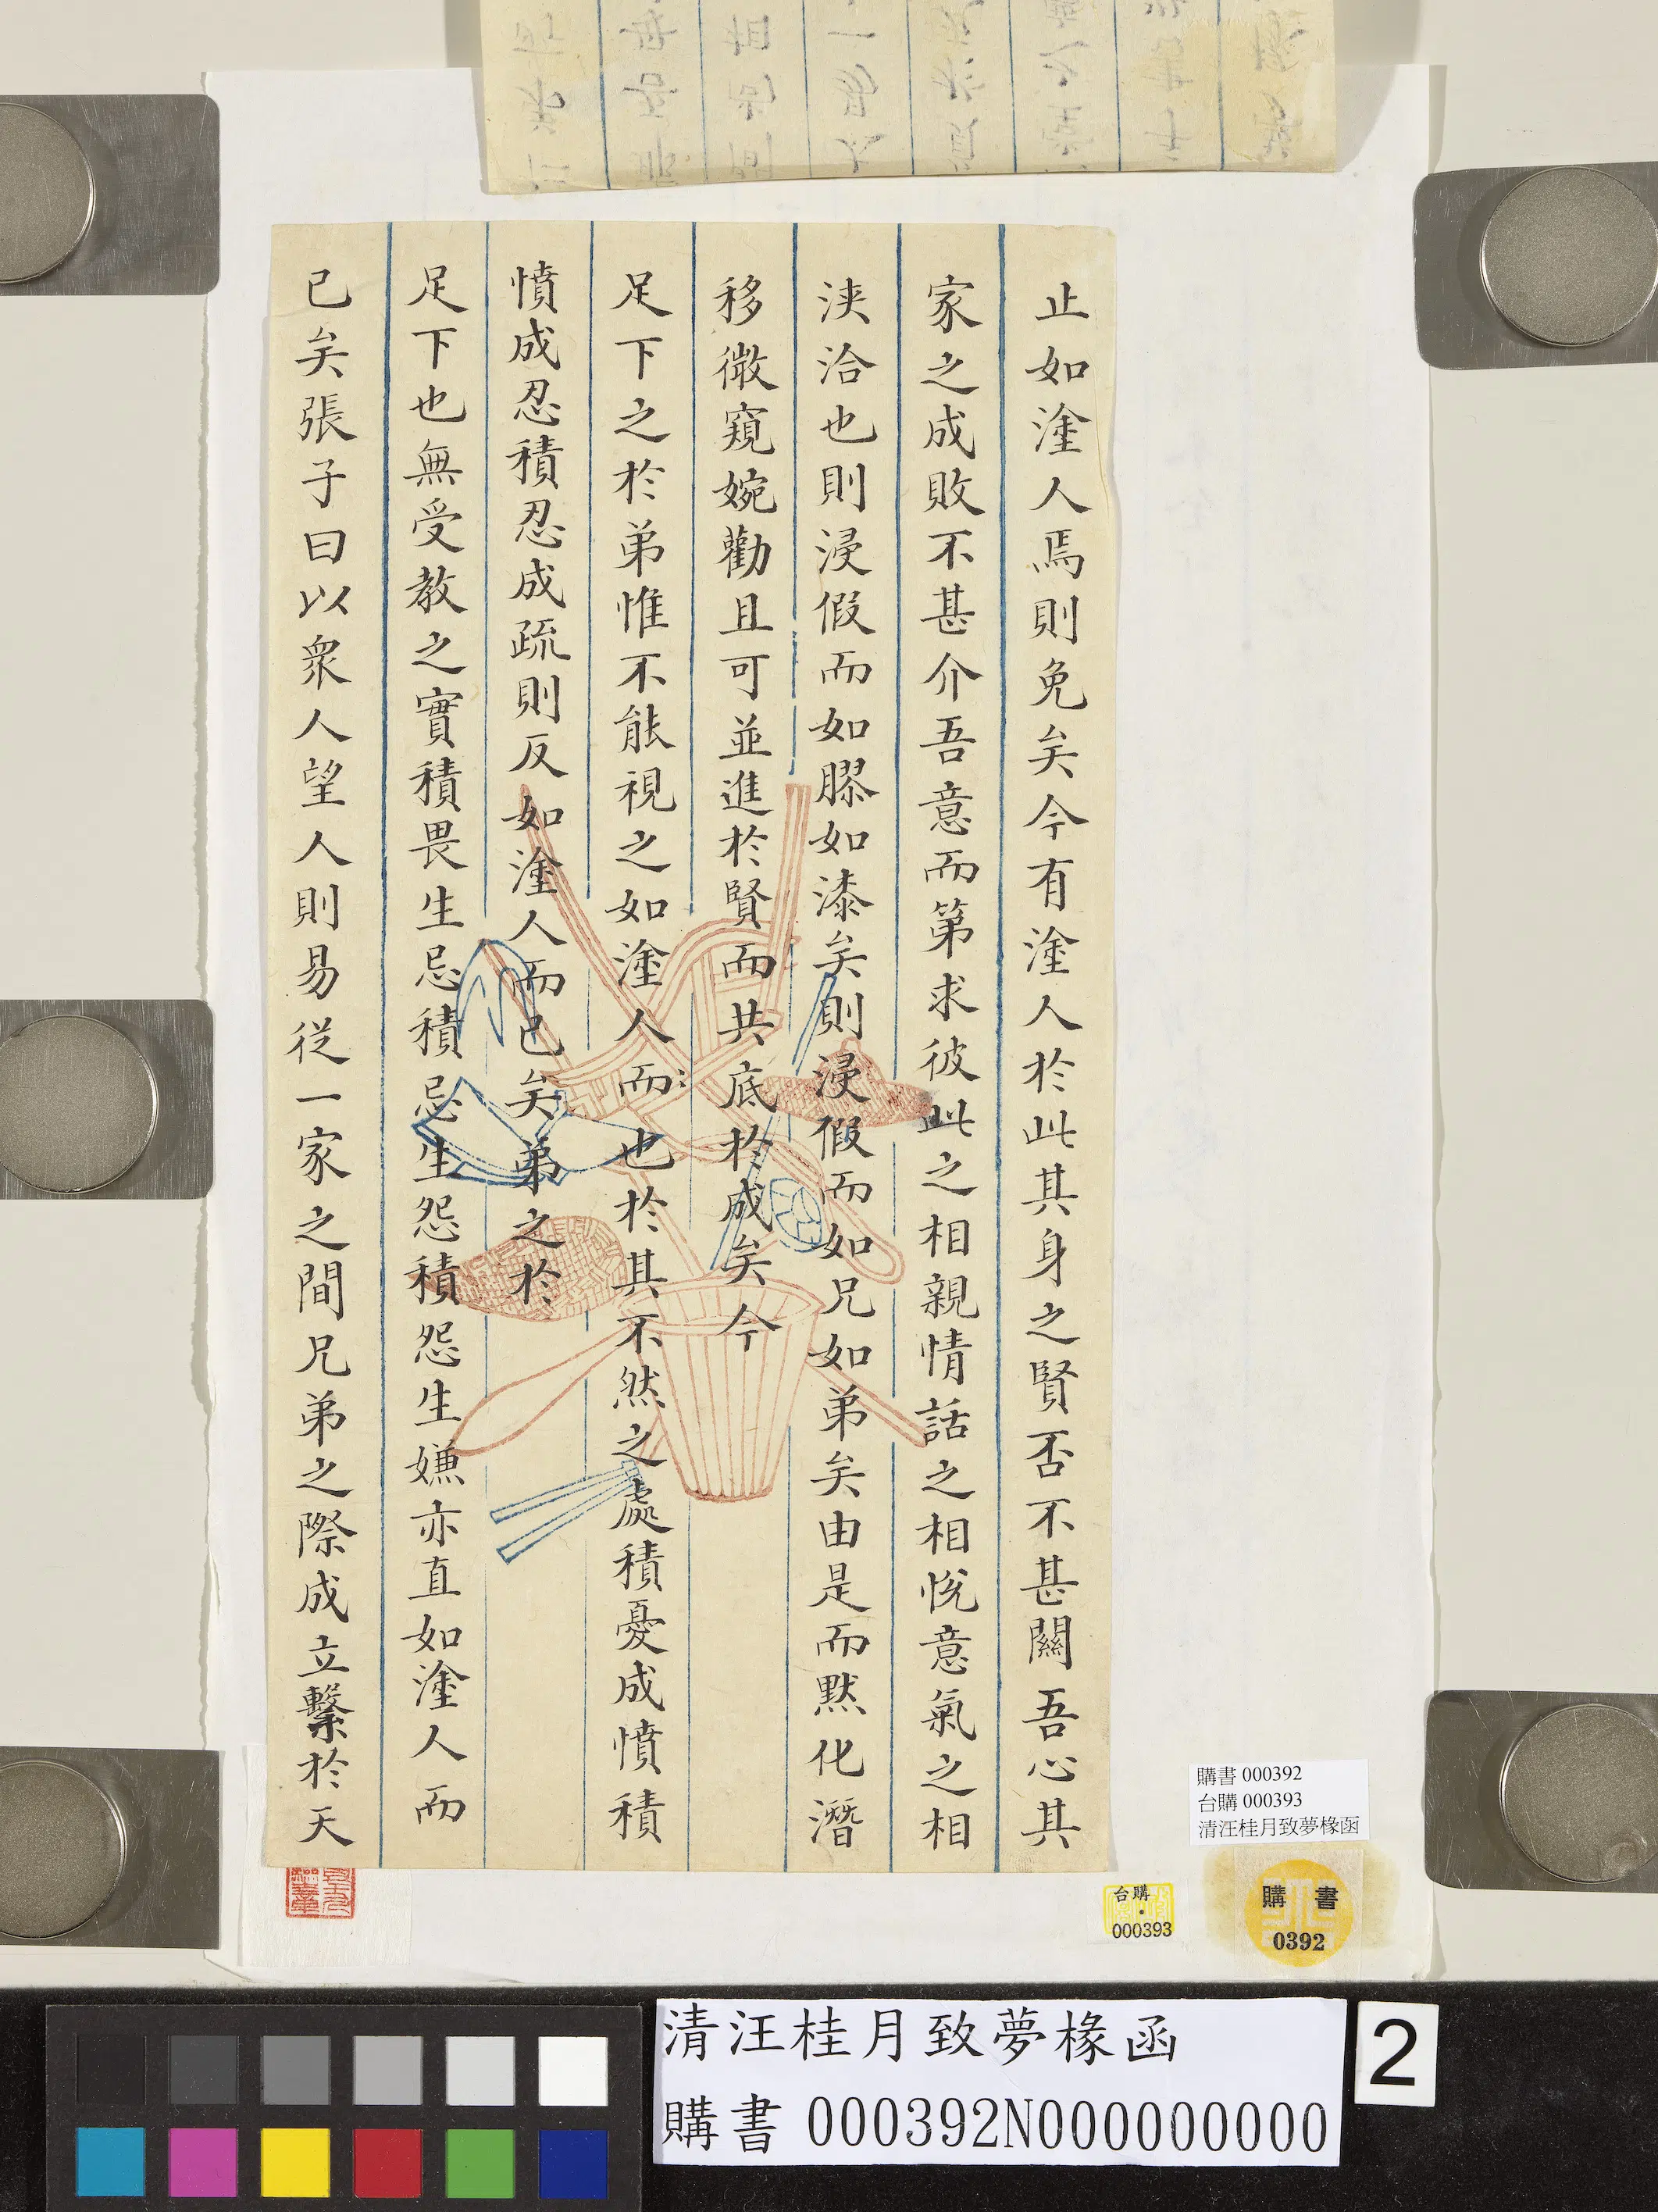 止如塗人焉則免矣今有塗人於此其身之賢否不甚關吾心其
家之成敗不甚介吾意而第求彼此之相親情話之相悅意氣之相
浹洽也則浸假而如膠如漆矣則浸假而如兄如弟矣由是而默化潛
移微窺婉勸且可並進於賢而共底於成矣今
足下之於弟惟不能視之如塗人而也於其不然之處積憂成憤積
憤成忍積忍成疏則反如塗人而已矣弟之於
足下也無受教之實積畏生忌積忌生怨積怨生嫌亦直如塗人而
已矣張子曰以衆人望人則易從一家之間兄弟之際成立繫於天
購書 000392
台購 000393
清汪桂月致夢椽函
台購
000393
購書
0392
清汪桂月致夢椽函
購書 000392N000000000
2